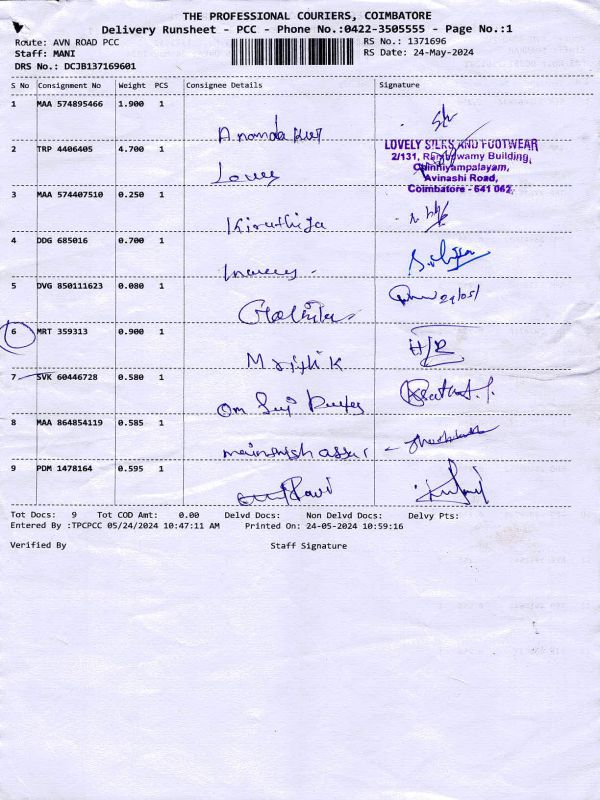 THE PROFESSIONAL COURIERS, COIMBATORE
Delivery Runsheet - PCC - Phone No.:0422-3505555 - Page No.:1
Route: AVN ROAD PCC RS No.: 1371696
Staff: MANI RS Date: 24-May-2024
DRS No.: DCJB137169601
S No Consignment No Weight PCS Consignee Details Signature
1 MAA 574895466 1.900 1
2 TRP 4406405 4.700 1
LOVELY SILKS AND FOOTWEAR
2/131, Building,
Chinniyampalayam,
Avinashi Road,
Coimbatore - 641 062.
3 MAA 574407510 0.250 1
Kiruthiga
4 DDG 685016 0.700 1
5 DVG 850111623 0.080 1
6 MRT 359313 0.900 1
7 SVK 60446728 0.580 1
8 MAA 864854119 0.585 1
9 PDM 1478164 0.595 1
Tot Docs: 9 Tot COD Amt: 0.00 Delvd Docs: Non Delvd Docs: Delvy Pts:
Entered By :TPCPCC 05/24/2024 10:47:11 AM Printed On: 24-05-2024 10:59:16
Verified By Staff Signature